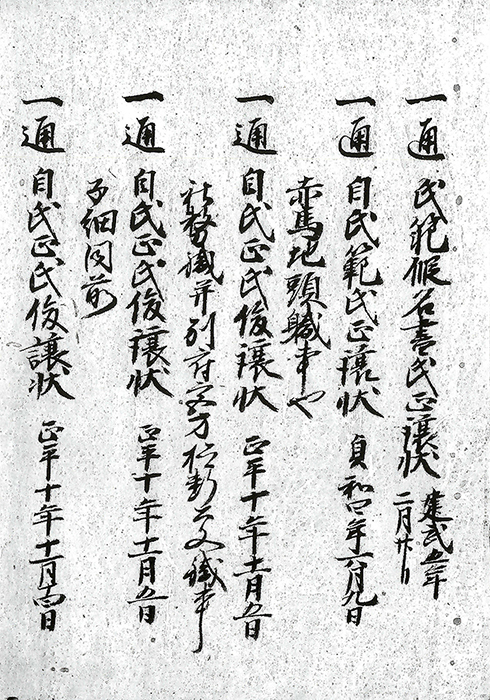 一通 氏範仮名書氏正譲状 建武五年
二月廿日
一通 自氏範氏正譲状 貞和四年六月九日
赤馬地頭職事や
一通 自氏正氏俊譲状 正平十年十一月五日
社務職并別府
公文職事
一通 自氏正氏俊譲状 正平十年十一月五日
子細同前
一通 自氏正氏俊譲状 正平十年十一月十四日